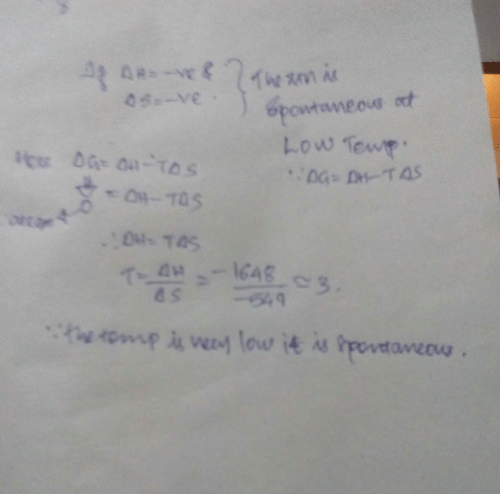 If ΔH = -ve &
ΔS = -ve.
The rxn is
Spontaneous at
Low Temp.
∵ ΔG = ΔH - TΔS
Here ΔG = ΔH - TΔS
0 = ΔH - TΔS
∴ ΔH = TΔS
T = ΔH/ΔS = -1648/-549 = 3.
∵ the temp is very low it is spontaneous.